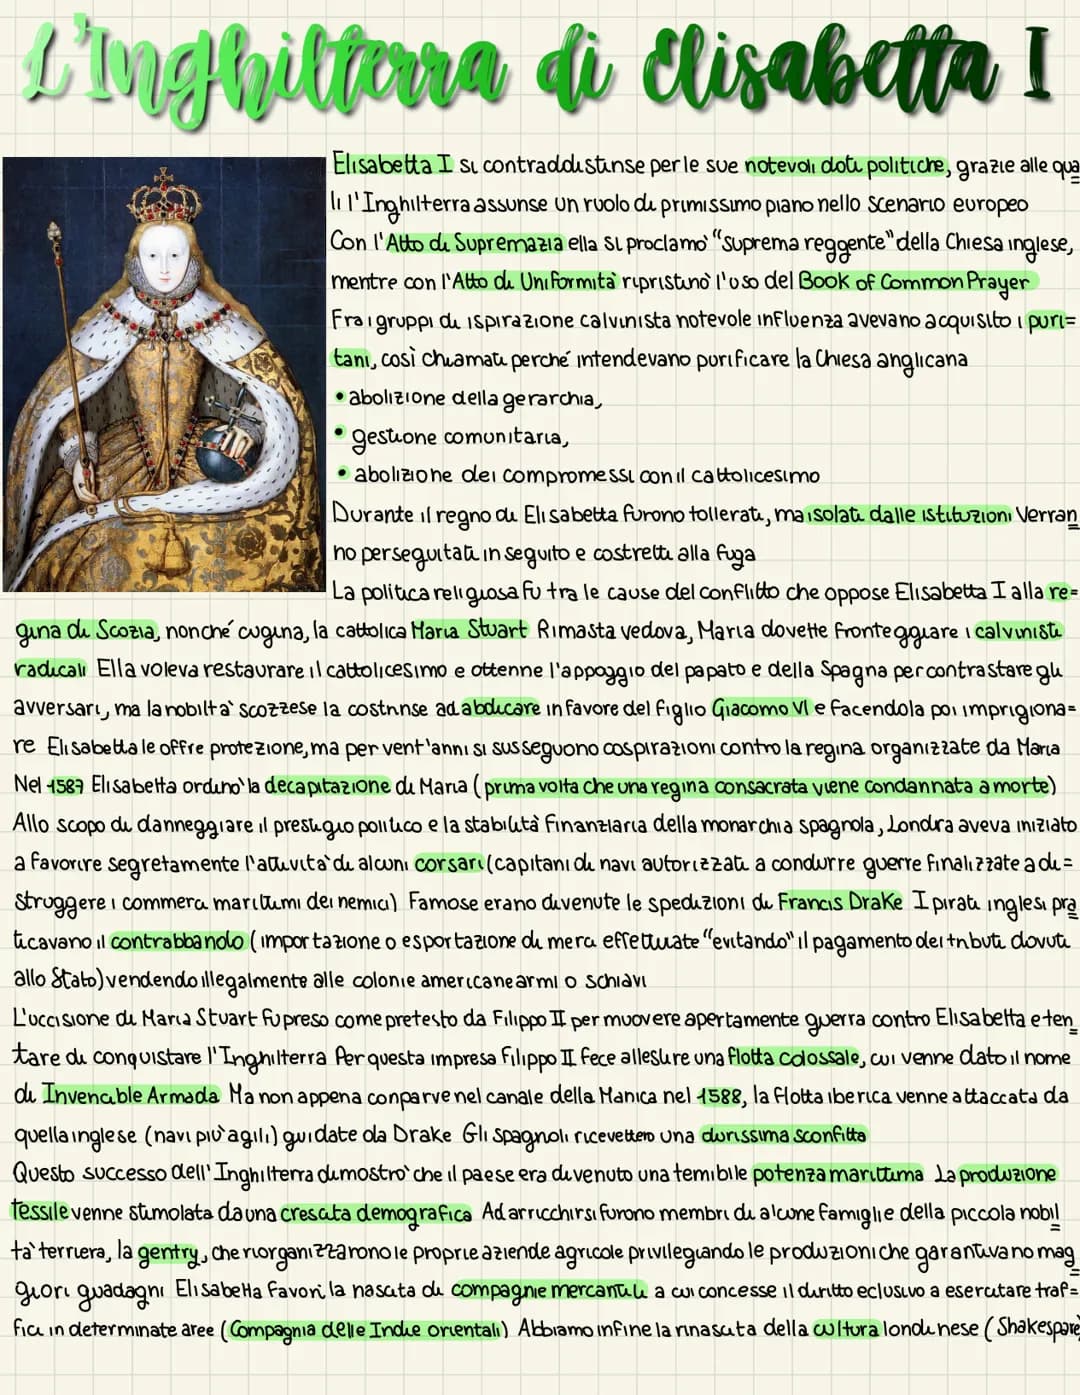 L'Inghilterra di Elisabetta I
Elisabetta I si contraddistinse per le sue notevoli doti politiche, grazie alle qua
li l'Inghilterra assunse un ruolo di primissimo piano nello scenario europeo
Con l'Atto di Supremazia ella si proclamò "suprema reggente" della Chiesa inglese,
mentre con l'Atto di Uniformità ripristinò l'uso del Book of Common Prayer
Fra i gruppi di ispirazione calvinista notevole influenza avevano acquisito i puri=
tani, così chiamati perché intendevano purificare la Chiesa anglicana
• abolizione della gerarchia,
• gestione comunitaria,
• abolizione dei compromessi con il cattolicesimo
Durante il regno di Elisabetta furono tollerati, ma isolati dalle istituzioni Verran
no perseguitati in seguito e costretti alla fuga
La politica religiosa fu tra le cause del conflitto che oppose Elisabetta I alla re=
gina di Scozia, nonché cugina, la cattolica Maria Stuart Rimasta vedova, Maria dovette fronteggiare i calvinisti
radicali Ella voleva restaurare il cattolicesimo e ottenne l'appoggio del papato e della Spagna per contrastare gli
avversari, ma la nobiltà scozzese la costrinse ad abdicare in favore del figlio Giacomo VI e facendola poi imprigiona=
re Elisabetta le offre protezione, ma per vent'anni si susseguono cospirazioni contro la regina organizzate da Maria
Nel 1587 Elisabetta ordinò la decapitazione di Maria (prima volta che una regina consacrata viene condannata a morte)
Allo scopo di danneggiare il prestigio politico e la stabilità finanziaria della monarchia spagnola, Londra aveva iniziato
a favorire segretamente l'attività di alcuni corsari (capitani di navi autorizzati a condurre guerre finalizzate a di=
struggere i commerci marittimi dei nemici) Famose erano divenute le spedizioni di Francis Drake I pirati inglesi pra
ticavano il contrabbando (importazione o esportazione di merci effettuate "evitando" il pagamento dei tributi dovuti
allo Stato) vendendo illegalmente alle colonie americane armi o schiavi
L'uccisione di Maria Stuart fu preso come pretesto da Filippo II per muovere apertamente guerra contro Elisabetta e ten
tare di conquistare l'Inghilterra Per questa impresa Filippo II fece allestire una flotta colossale, cui venne dato il nome
di Invencible Armada Ma non appena comparve nel canale della Manica nel 1588, la flotta iberica venne attaccata da
quella inglese (navi più agili) guidate da Drake Gli spagnoli ricevettero una durissima sconfitta
Questo successo dell'Inghilterra dimostrò che il paese era divenuto una temibile potenza marittima La produzione
tessile venne stimolata da una crescita demografica Ad arricchirsi furono membri di alcune famiglie della piccola nobil
tà terriera, la gentry, che riorganizzarono le proprie aziende agricole privilegiando le produzioni che garantivano mag
giori guadagni Elisabetta favorì la nascita di compagnie mercantili a cui concesse il diritto eclusivo a esercitare traf=
fici in determinate aree (Compagnia delle Indie orientali) Abbiamo infine la rinascita della cultura londinese (Shakespare)